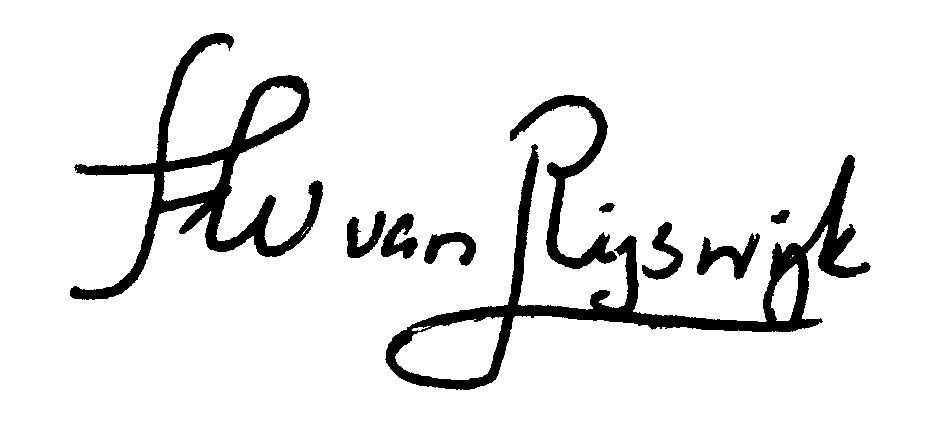 FW van Rijswijk